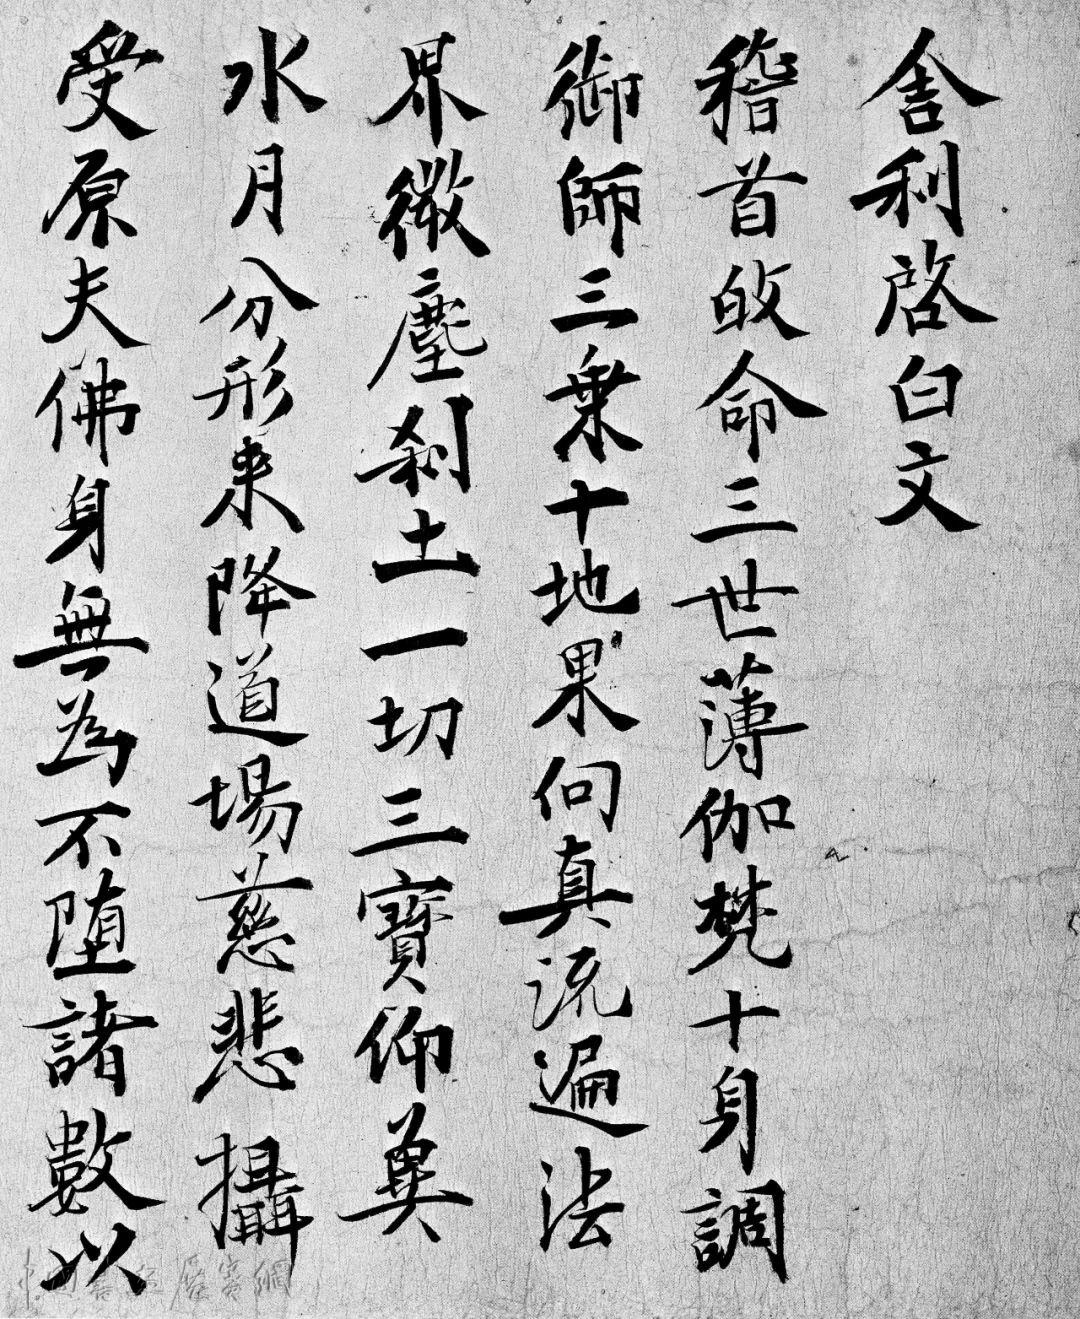 舍利啓白文
稽首皈命三世薄伽梵十身調
御師三乗十地果向真流遍法
界微塵刹土一切三寶仰奠
水月分形来降道場慈悲攝
受原夫佛身無為不堕諸數以